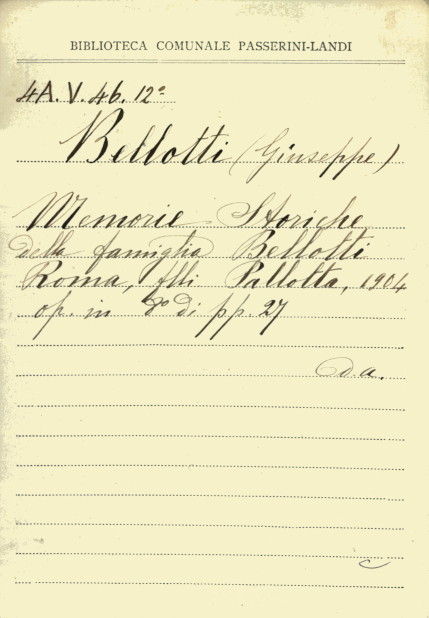 BIBLIOTECA COMUNALE PASSERINI-LANDI
4A.V.46.12º
Bellotti (Giuseppe)
Memorie Storiche
della famiglia Bellotti
Roma, flli Pallotta, 1904
op. in 8º di pp. 27
d.a.